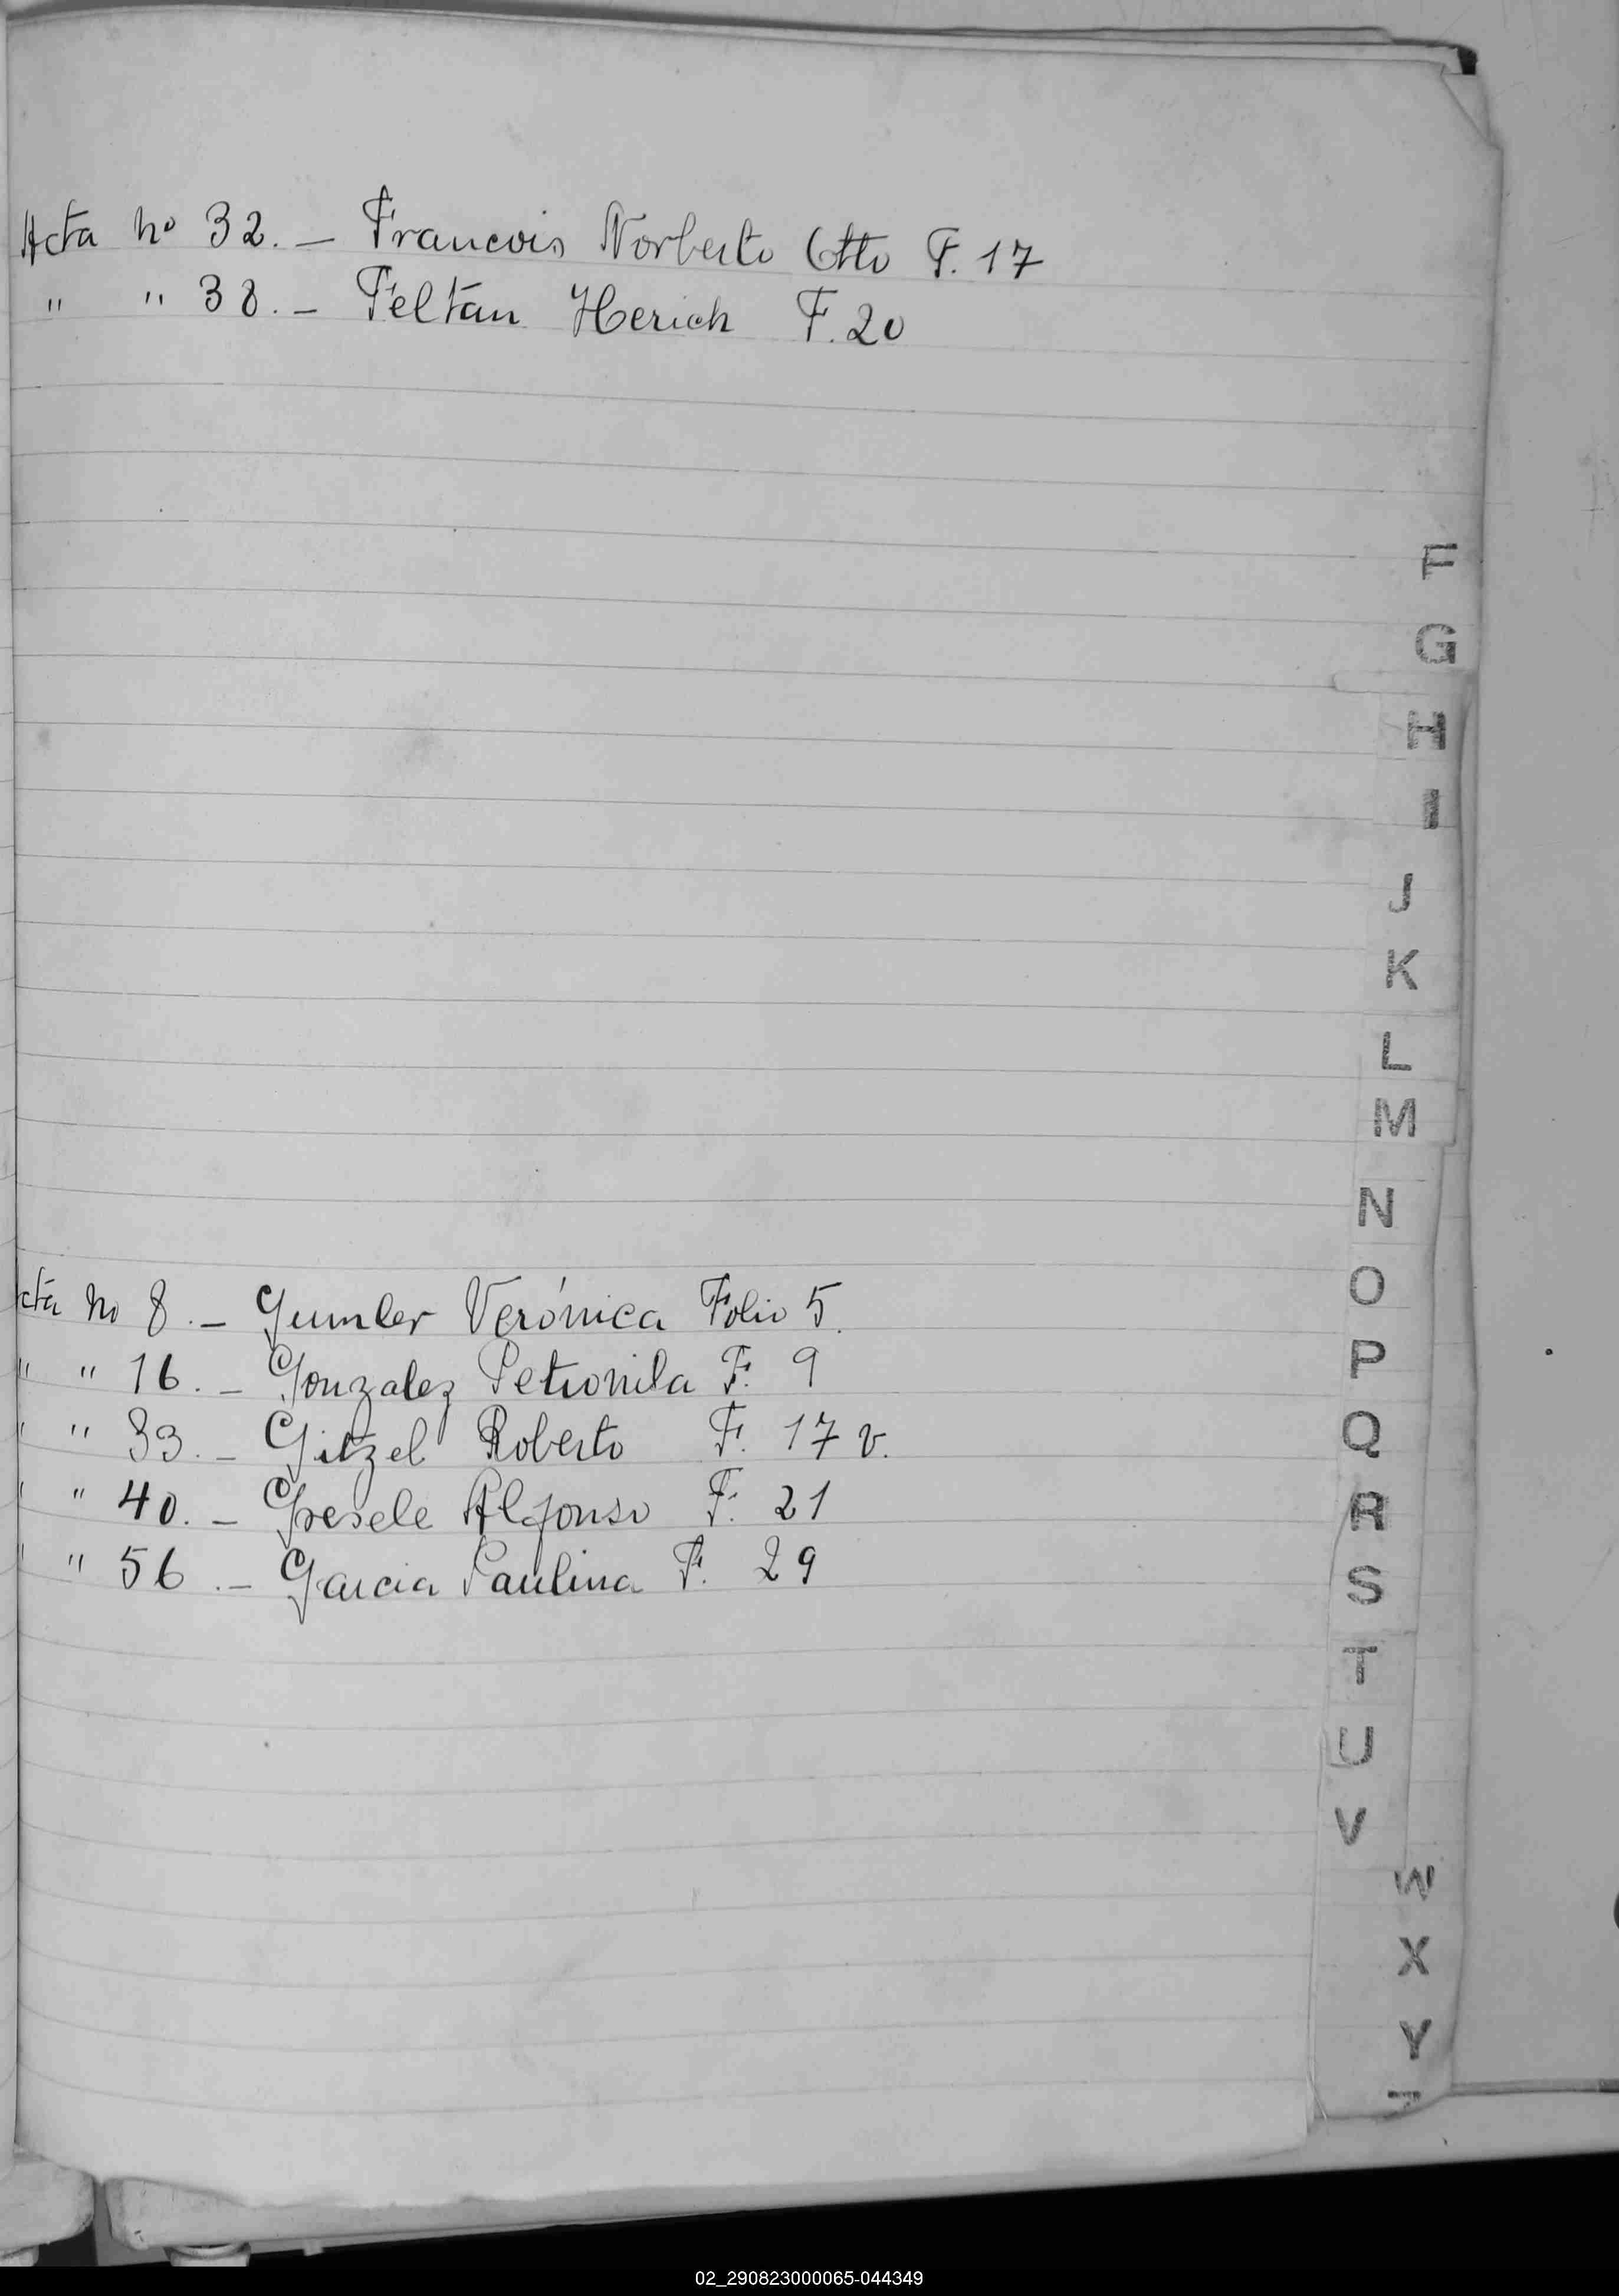 Acta no 32. - Francois Norberto Otto F. 17
" " 38. - Feltan Herich F. 20
F
G
H
I
J
K
L
M
N
O
P
Q
R
S
T
U
V
W
X
Y
Z
cta no 8. - Gumler Verónica Folio 5.
" " 16. - Gonzalez Petronila F. 9
" " 33. - Gitzel Roberto F. 17 v.
" " 40. - Gresele Alfonso F. 21
" " 56. - Garcia Paulina F. 29
02_290823000065-044349